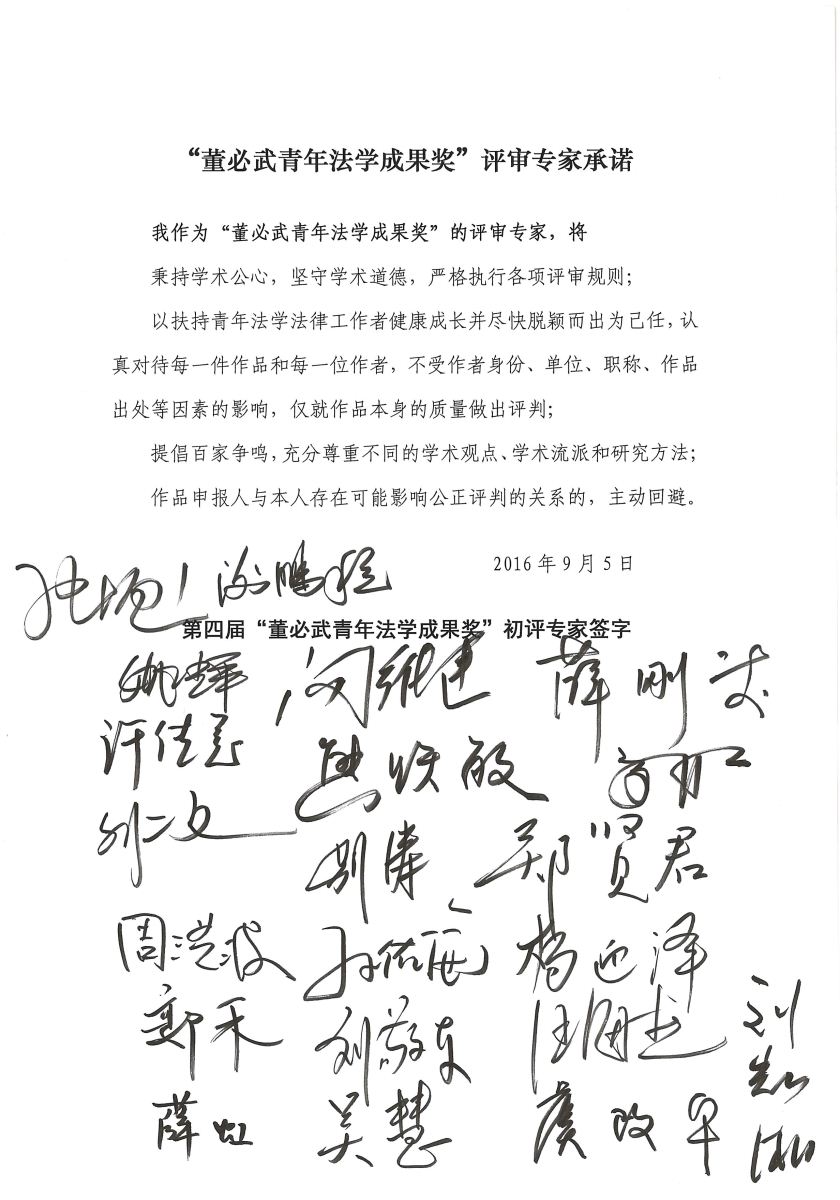 “董必武青年法学成果奖”评审专家承诺
我作为“董必武青年法学成果奖”的评审专家，将
秉持学术公心，坚守学术道德，严格执行各项评审规则；
以扶持青年法学法律工作者健康成长并尽快脱颖而出为己任，认
真对待每一件作品和每一位作者，不受作者身份、单位、职称、作品
出处等因素的影响，仅就作品本身的质量做出评判；
提倡百家争鸣，充分尊重不同的学术观点、学术流派和研究方法；
作品申报人与本人存在可能影响公正评判的关系的，主动回避。
2016年9月5日
谢鹏程
第四届“董必武青年法学成果奖”初评专家签字
姚辉 薛刚凌
刘仁文 郑贤君
周洪波 孙佑海 杨迎泽
郭禾 刘敬东
薛虹 吴慧 虞政平